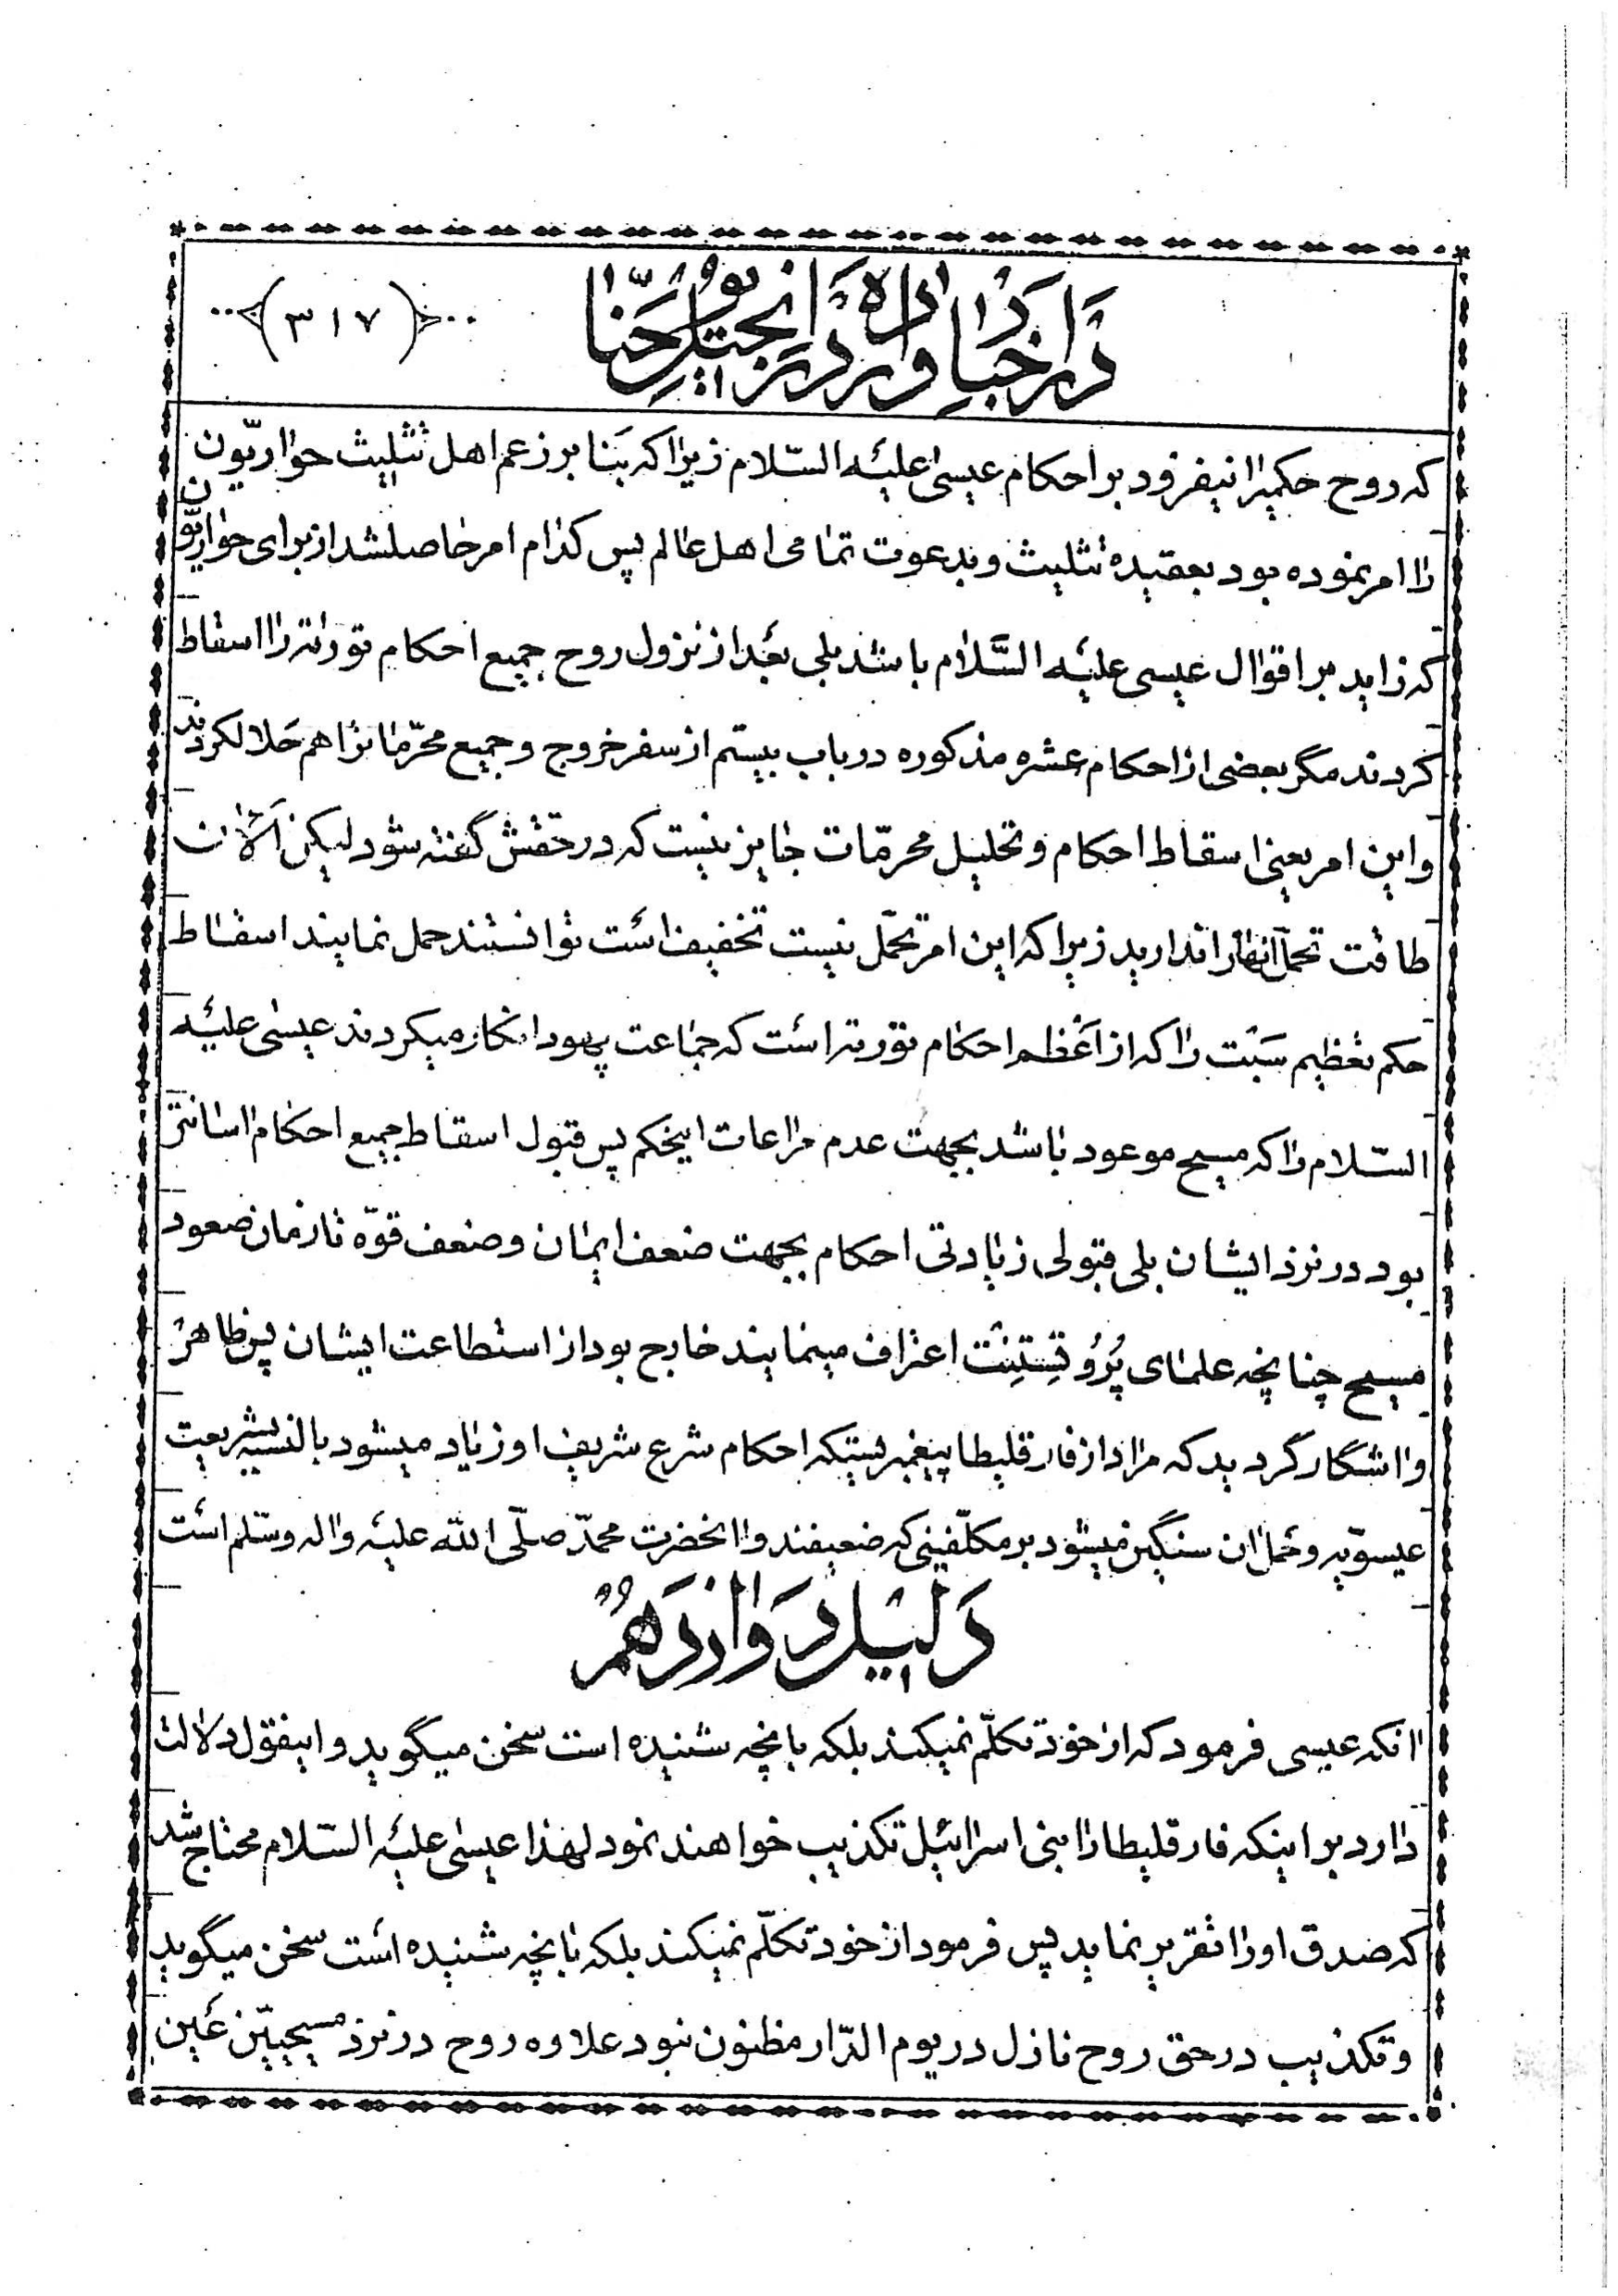 در اخبار وارده در انجیل یوحنّا
(۳۱۷)
که روح حکمیرا نیفزود بر احکام عیسی علیه السّلام زیرا که بنا بر زعم اهل تثلیث حواریّون
را امر نموده بود بعقیدهٔ تثلیث و بدعوت تمامی اهل عالم پس کدام امر حاصلشد از برای حواریّون
که زاید بر اقوال عیسی علیه السَّلام باشد بلی بعد از نزول روح جمیع احکام تورایة را اسقاط
کردند مگر بعضی از احکام عشره مذکوره در باب بیستم از سفر خروج و جمیع محرّماترا هم حلالکردند
و این امر یعنی اسقاط احکام و تحلیل محرّمات جایز نیست که در حقّش گفته شود لیکن الآن
طاقت تحمل آنها را ندارید زیرا که این امر تحمّل نیست تخفیف است توانستند حمل نمایند اسقاط
حکم تعظیم سَبْت را که از اَعْظم احکام توریة است که جماعت یهود انکار میکردند عیسی علیه
السّلام را که مسیح موعود باشد بجهت عدم مراعات اینحکم پس قبول اسقاط جمیع احکام اسانتر
بود در نزد ایشان بلی قبولی زیادتی احکام بجهت ضعف ایمان و ضعف قوّه تا زمان صعود
مسیح چنانچه علمای پُرُوتِستِنْت اعتراف مینمایند خارج بود از استطاعت ایشان پس ظاهر
و اشکار گردید که مراد از فارقلیطا پیغمبریستکه احکام شرع شریف او زیاد میشود بالنسبه بشریعت
عیسوّیه و حمل ان سنگین میشود بر مکلّفینی که ضعیفند و انحضرت محمّد صلّی اللّه علیه و اله و سّلم است
دَلیل دوازدَهُم
انکه عیسی فرمود که از خود تکلّم نمیکند بلکه بانچه شنیده است سخن میگوید و اینقول دلالت
دارد بر اینکه فارقلیطا را بنی اسرائیل تکذیب خواهند نمود لهذا عیسی علیه السّلام محتاج شد
که صدق او را تقریر نماید پس فرمود از خود تکلّم نمیکند بلکه بانچه شنیده است سخن میگوید
و تکذیب در حق روح نازل در یوم الدّار مظنون نبود علاوه روح در نزد مسیحیّین عَین